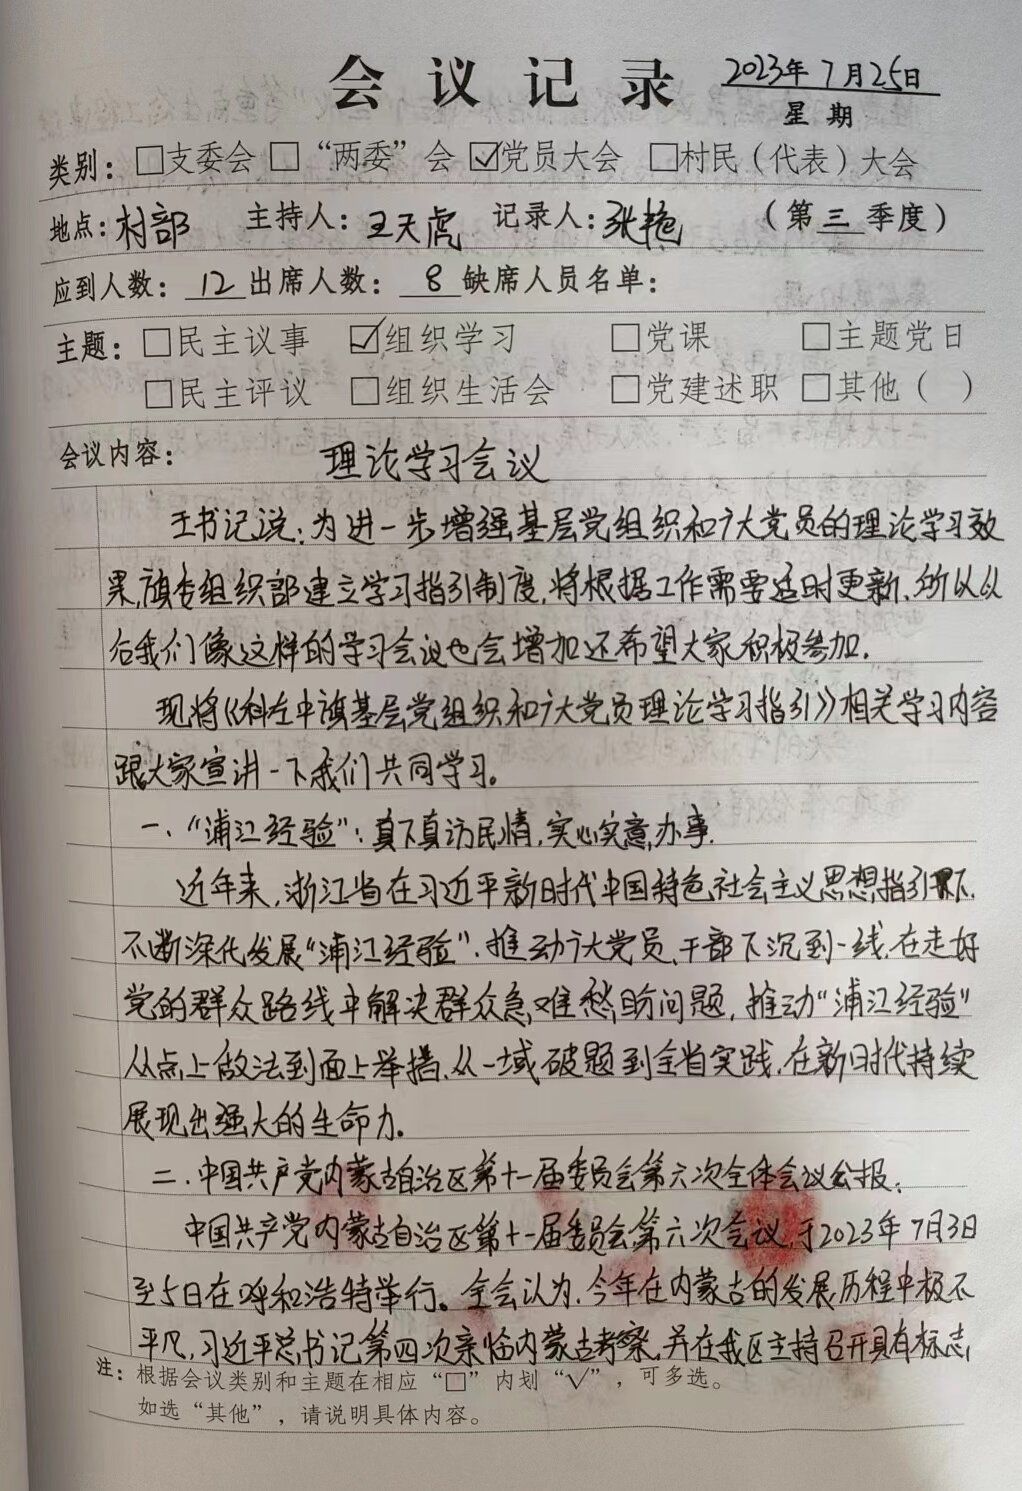 会议记录 2023年7月25日
星期
类别：□支委会 □“两委”会 ☑党员大会 □村民（代表）大会
地点：村部 主持人：王天虎 记录人：张艳 （第三季度）
应到人数：12 出席人数：8 缺席人员名单：
主题：□民主议事 ☑组织学习 □党课 □主题党日
□民主评议 □组织生活会 □党建述职 □其他（ ）
会议内容： 理论学习会议
王书记说：为进一步增强基层党组织和广大党员的理论学习效
果，旗委组织部建立学习指引制度，将根据工作需要适时更新、所以以
后我们像这样的学习会议也会增加还希望大家积极参加.
现将《科左中旗基层党组织和广大党员理论学习指引》相关学习内容
跟大家宣讲一下我们共同学习。
一、“浦江经验”：真下真访民情，实心实意办事.
近年来，浙江省在习近平新时代中国特色社会主义思想指引下，
不断深化发展“浦江经验”，推动广大党员、干部下沉到一线，在走好
党的群众路线中解决群众急难愁盼问题，推动“浦江经验”
从点上做法到面上举措、从一域破题到全省实践，在新时代持续
展现出强大的生命力.
二、中国共产党内蒙古自治区第十一届委员会第六次全体会议公报：
中国共产党内蒙古自治区第十一届委员会第六次会议，于2023年7月3日
至5日在呼和浩特举行。全会认为，今年在内蒙古的发展历程中极不
平凡，习近平总书记第四次亲临内蒙古考察，并在我区主持召开具有标志
注：根据会议类别和主题在相应“□”内划“√”，可多选。
如选“其他”，请说明具体内容。